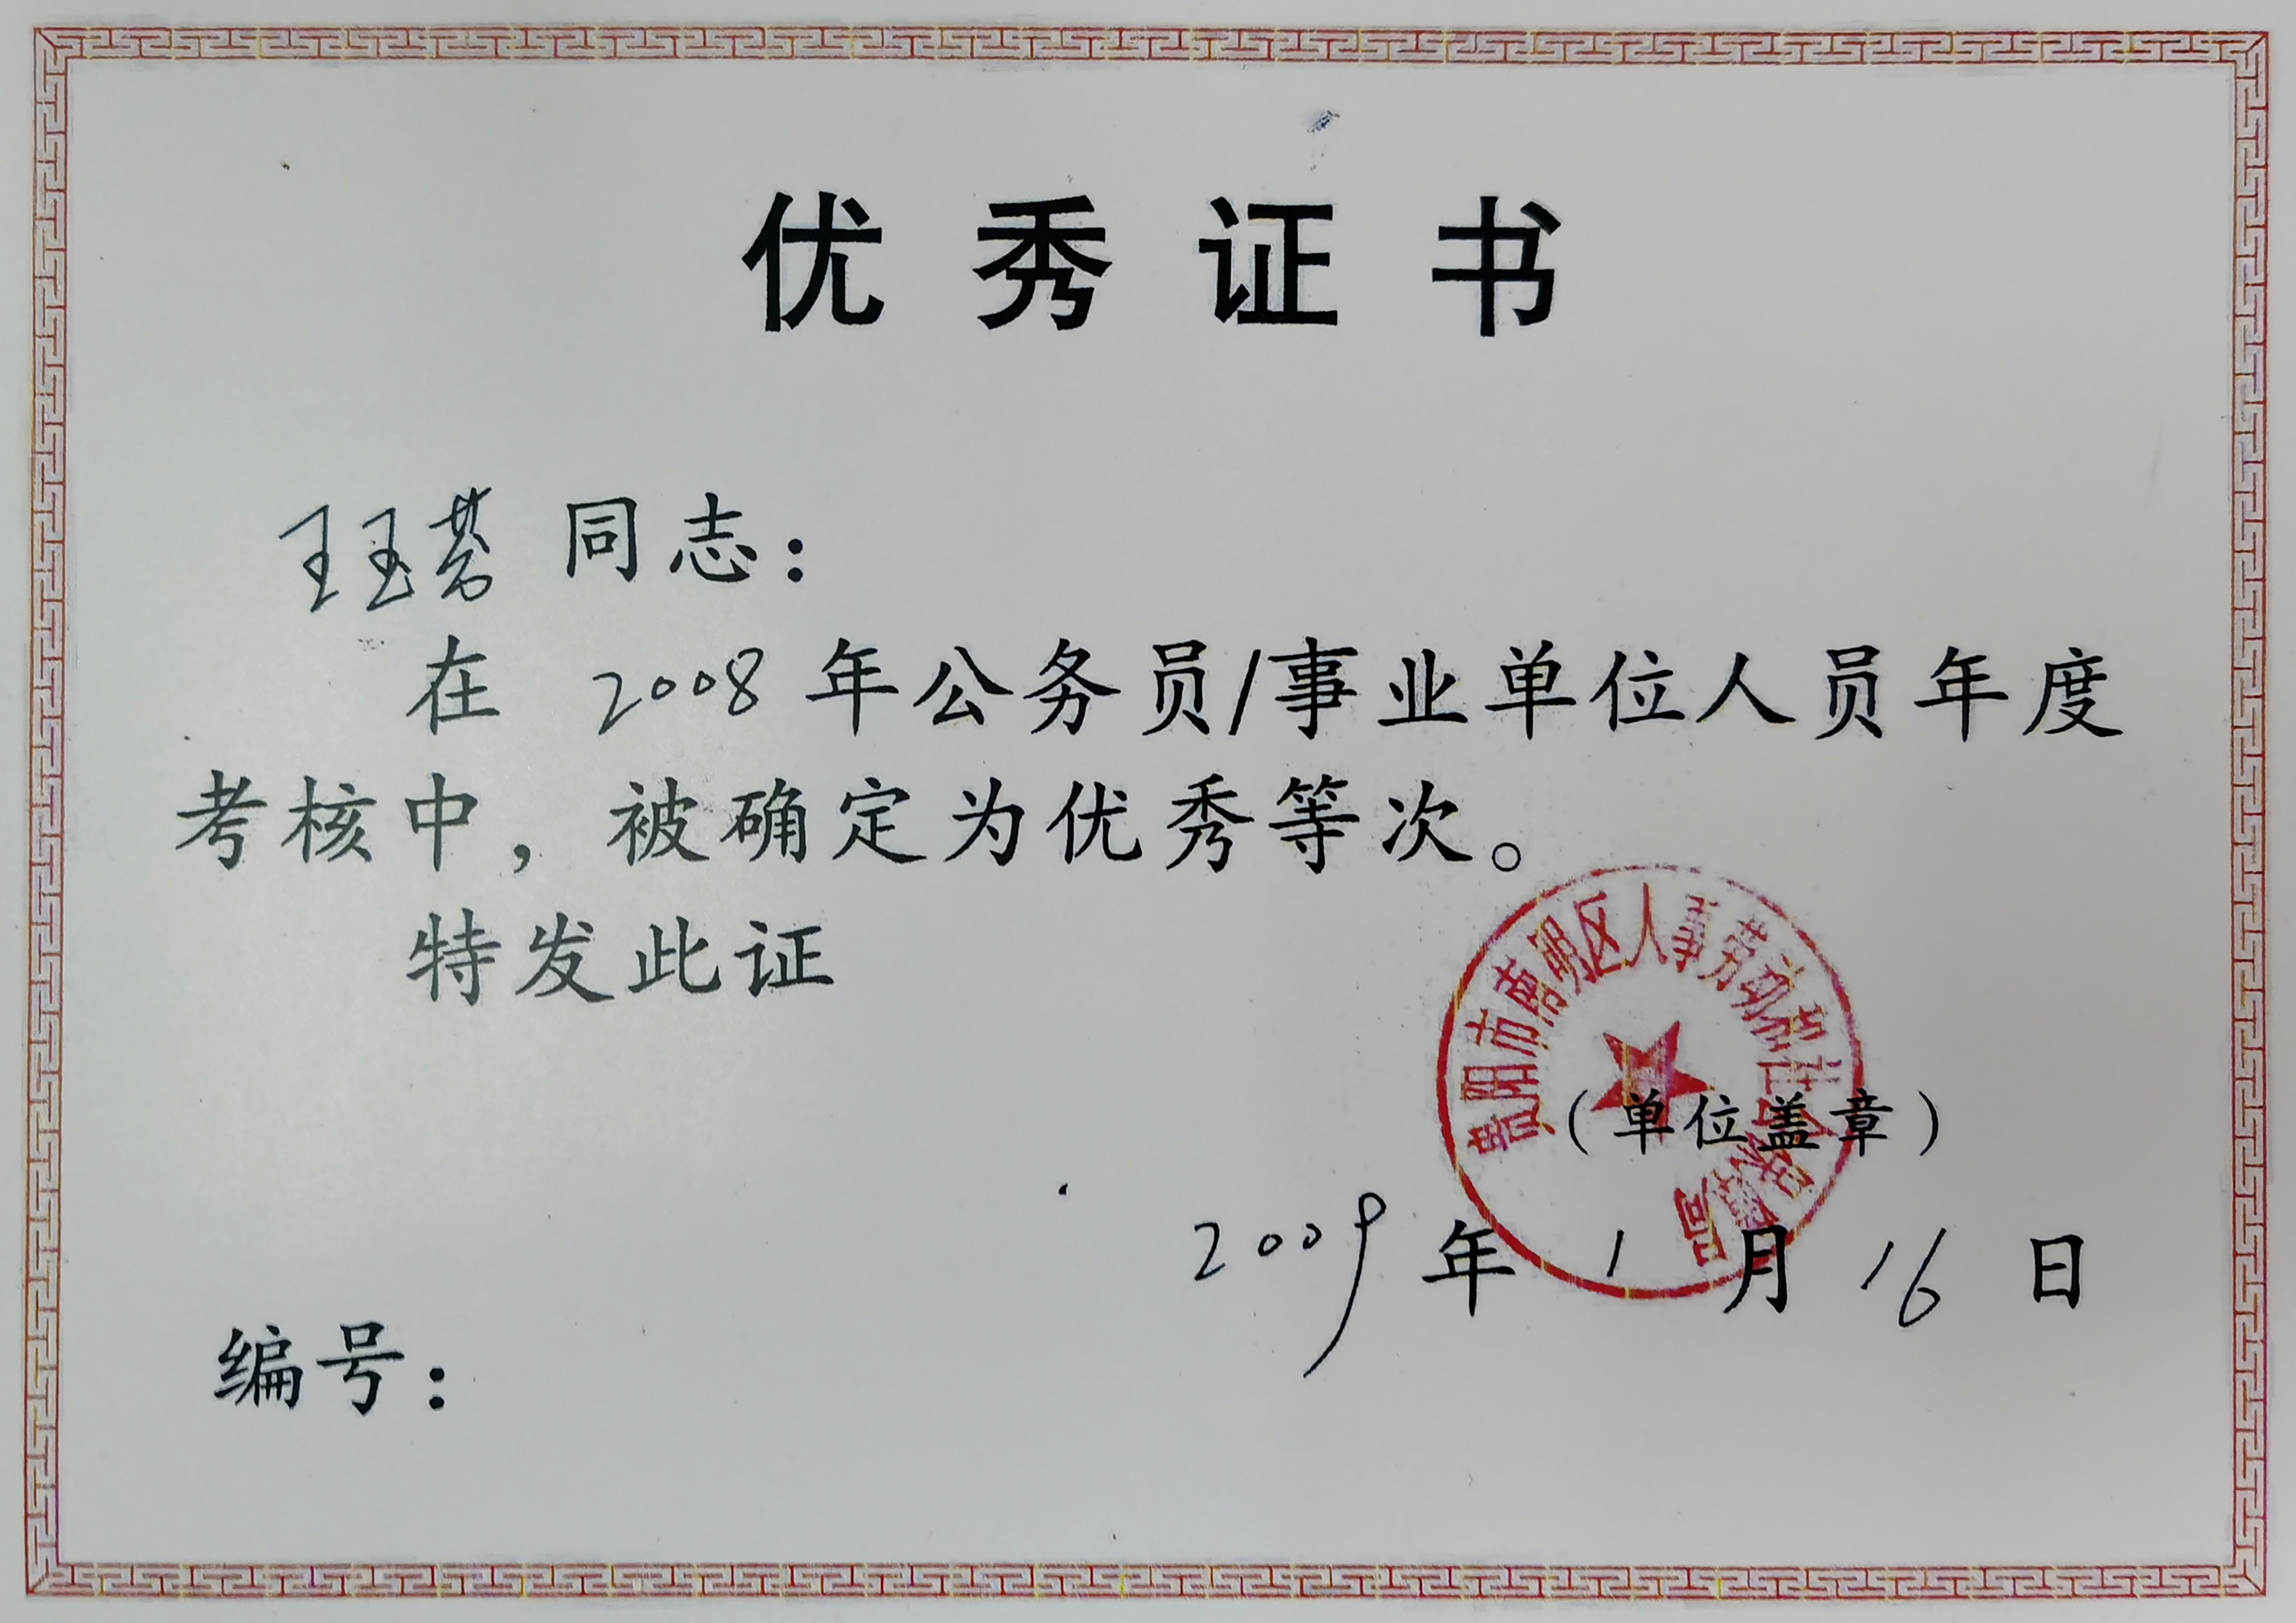 优秀证书
王玉芬 同志：
在 2008 年公务员/事业单位人员年度
考核中，被确定为优秀等次。
特发此证
贵阳市南明区人事劳动和社会
（单位盖章）
2009 年 1 月 16 日
编号：